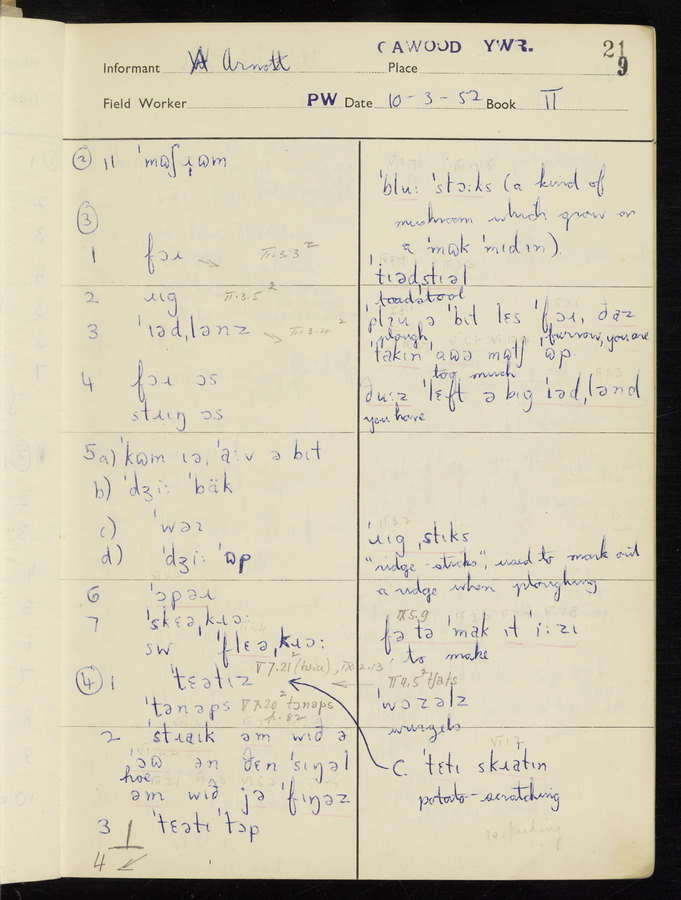 CAWOOD YWR.
21
9
Informant W Arnott Place
Field Worker PW Date 10-3-52 Book II
② 11 ˈmɷʃɹɷm
③
1 fɔɹ II.3.3²
2 ɹɪg II.3.5²
3 ˈɪəd,lənz II.3.4²
4 fɔɹ ɔs
stɪɹɪŋ ɔs
5a) ˈkɷm ɪə, ˈaːv ə bɪt
b) ˈdʒiː ˈbäk
c) ˈwəɪ
d) ˈdʒiː ˈɷp
6 ˈɔpəɹ
7 ˈskɛə,kɹəː
sw ˈflɛə,kɹəː
④ 1 ˈtɛətɪz V 7.21 (twice),
ˈtənəps V 7.20² tɔnəps
p.82
2 ˈstɹaɪk əm wɪð ə
ˈɔɷ ən ðɛn ˈsɪŋəl
hoe
əm wɪð jə ˈfɪŋəz
3 ˈtɛətɪ ˈtɔp
4
ˈbluː ˈstɔːks (a kind of
mushroom which grow on
a ˈmɷk ˈmɪdɪn).
ˈtɪədstɪəl
toadstool
ˈplɪu ə ˈbɪt lɛs ˈfɔɹ, ðəz
plough furrow, you are
ˈtakɪn ˈaɷə mɷtʃ ˈɷp
too much
ðuːz ˈlɛft ə bɪg ˈɪəd,lənd
you have
ˈɹɪg ,stɪks
"ridge-sticks", used to mark out
a ridge when ploughing
IX 5.9
fə tə ˈmak ɪt ˈiːzɪ
to make
II 4.5² tɛəts
ˈwɔzəlz
wurzels
C. ˈtɛtɪ skɹatɪn
potato-scratching